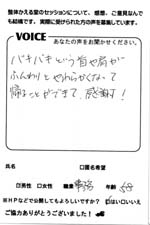 整体かえる堂のセッションについて、感想、ご意見なんで
も結構です。実際に受けられた方の声を募集しています。
VOICE
あなたの声をお聞かせください。
バキバキという首や肩が
ふんわりとやわらかくなって
帰ることができて、感謝!
氏名
□匿名希望
□男性 □女性 職業 年齢 58
※HPなどで公開してもよろしいですか? □はい□いいえ
ご協力ありがとうございました!